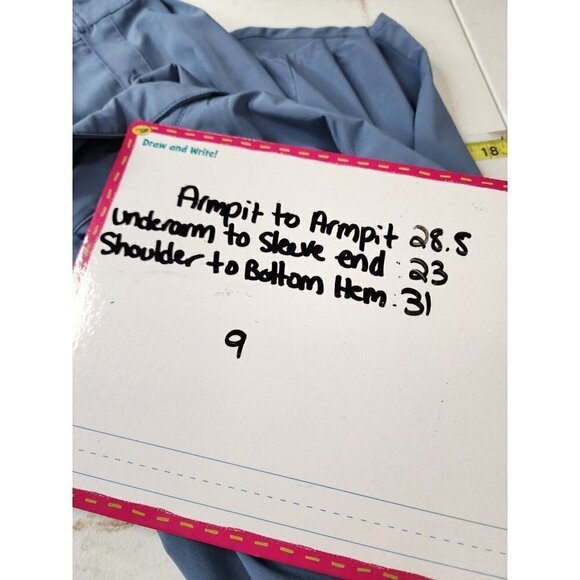 18
Draw and Write!
Armpit to Armpit 28.5
underarm to sleeve end : 23
Shoulder to Bottom Hem : 31
9